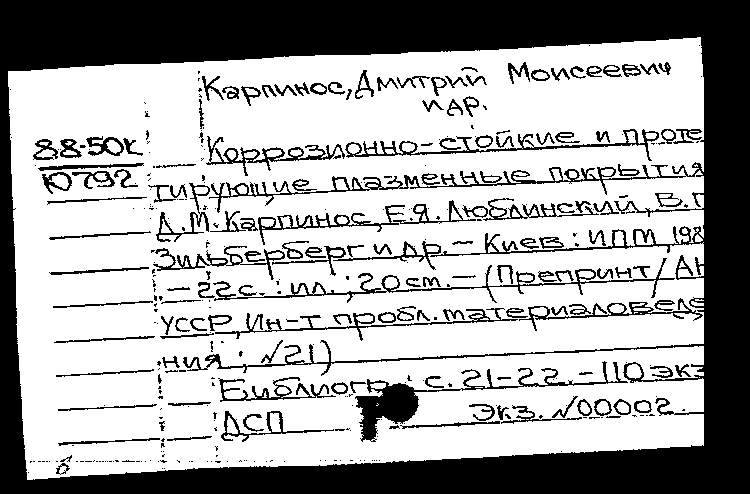 Карпинос, Дмитрий Моисеевич
и др.
88-50к
Ю792
Коррозионно-стойкие и проте
тирующие плазменные покрытия
Д.М. Карпинос, Е.Я. Люблинский, В.Г
Зильберберг и др. - Киев : ИПМ, 198
. - 22с. : ил. ; 20 см. - (Препринт / АН
УССР, Ин-т пробл. материаловеде
ния ; №21)
Библиогр.: с. 21-22. - 110 экз
ДСП Экз. №00002.